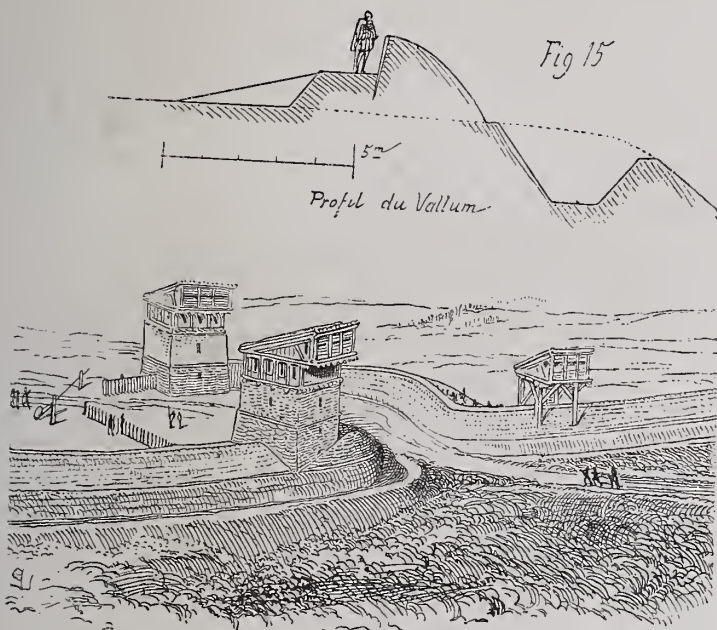 Fig 15
5m
Profil du Vallum